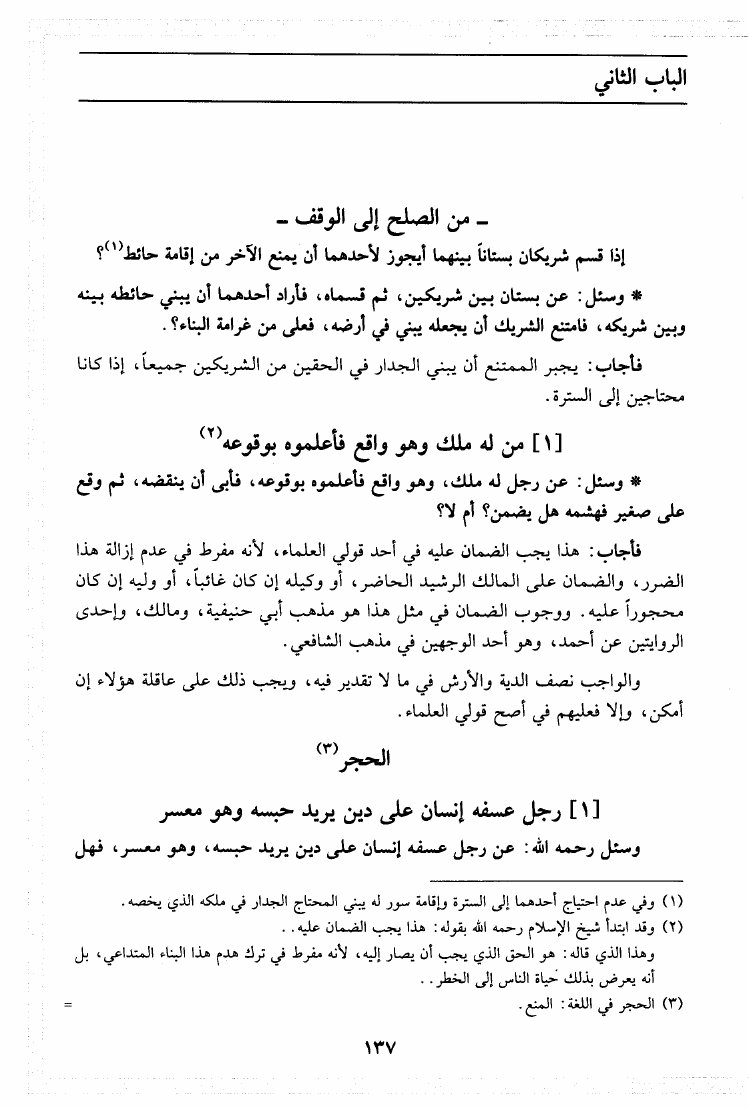 الباب الثاني
ـ من الصلح إلى الوقف ـ
إذا قسم شريكان بستاناً بينهما أيجوز لأحدهما أن يمنع الآخر من إقامة حائط(١)؟
* وسئل: عن بستان بين شريكين، ثم قسماه، فأراد أحدهما أن يبني حائطه بينه
وبين شريكه، فامتنع الشريك أن يجعله يبني في أرضه، فعلى من غرامة البناء؟.
فأجاب: يجبر الممتنع أن يبني الجدار في الحقين من الشريكين جميعاً، إذا كانا
محتاجين إلى السترة.
[١] من له ملك وهو واقع فأعلموه بوقوعه(٢)
* وسئل: عن رجل له ملك، وهو واقع فأعلموه بوقوعه، فأبى أن ينقضه، ثم وقع
على صغير فهشمه هل يضمن؟ أم لا؟
فأجاب: هذا يجب الضمان عليه في أحد قولي العلماء، لأنه مفرط في عدم إزالة هذا
الضرر، والضمان على المالك الرشيد الحاضر، أو وكيله إن كان غائباً، أو وليه إن كان
محجوراً عليه. ووجوب الضمان في مثل هذا هو مذهب أبي حنيفية، ومالك، وإحدى
الروايتين عن أحمد، وهو أحد الوجهين في مذهب الشافعي.
والواجب نصف الدية والأرش في ما لا تقدير فيه، ويجب ذلك على عاقلة هؤلاء إن
أمكن، وإلا فعليهم في أصح قولي العلماء.
الحجر(٣)
[١] رجل عسفه إنسان على دين يريد حبسه وهو معسر
وسئل رحمه الله: عن رجل عسفه إنسان على دين يريد حبسه، وهو معسر، فهل
(١) وفي عدم احتياج أحدهما إلى السترة وإقامة سور له يبني المحتاج الجدار في ملكه الذي يخصه.
(٢) وقد ابتدأ شيخ الإسلام رحمه الله بقوله: هذا يجب الضمان عليه..
وهذا الذي قاله: هو الحق الذي يجب أن يصار إليه، لأنه مفرط في ترك هدم هذا البناء المتداعي، بل
أنه يعرض بذلك حياة الناس إلى الخطر..
(٣) الحجر في اللغة: المنع. =
١٣٧